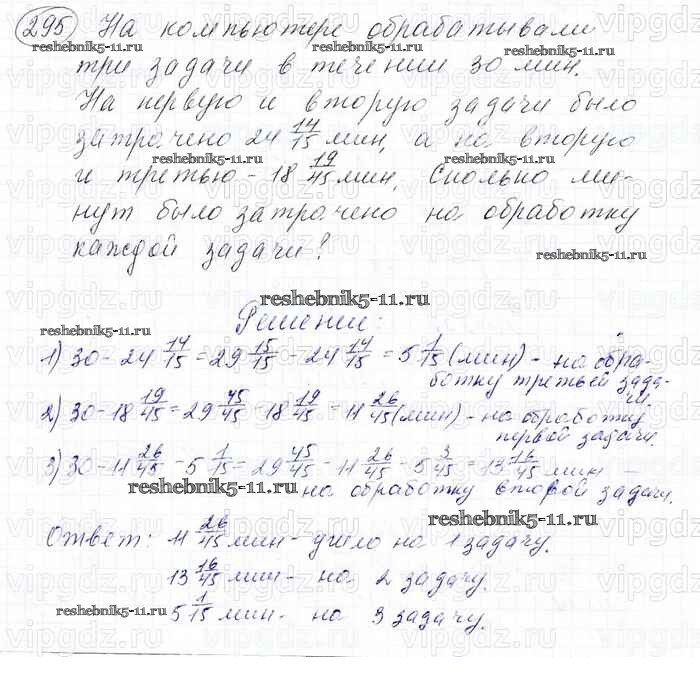 295 На компьютере обрабатывали
три задачи в течении 30 мин.
На первую и вторую задачи было
затрачено 24 14/15 мин, а на вторую
и третью - 18 19/45 мин. Сколько ми-
нут было затрачено на обработку
каждой задачи?
Решение:
1) 30 - 24 14/15 = 29 15/15 - 24 14/15 = 5 1/15 (мин) - на обра-
ботку третьей зада-
чи.
2) 30 - 18 19/45 = 29 45/45 - 18 19/45 = 11 26/45 (мин) - на обработку
первой задачи.
3) 30 - 11 26/45 - 5 1/15 = 29 45/45 - 11 26/45 - 5 3/45 = 13 16/45 мин -
на обработку второй задачи.
Ответ: 11 26/45 мин - ушло на 1 задачу.
13 16/45 мин - на 2 задачу.
5 1/15 мин - на 3 задачу.
reshebnik5-11.ru
vipgdz.ru